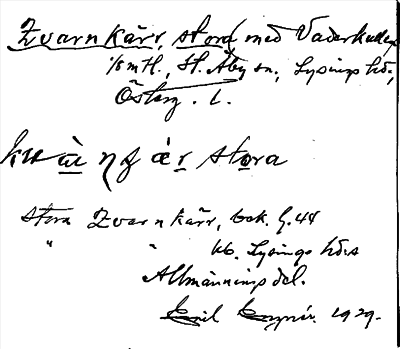 Zvarnkärr, stora med Väderkullen
1/8 mtl., St. Åby sn., Lysings hd.,
Österg. l.
stora
Stora Zvarnkärr, bok. G. 44
" " kb. Lysings hds
Allmänningsdel.
Emil 1929.